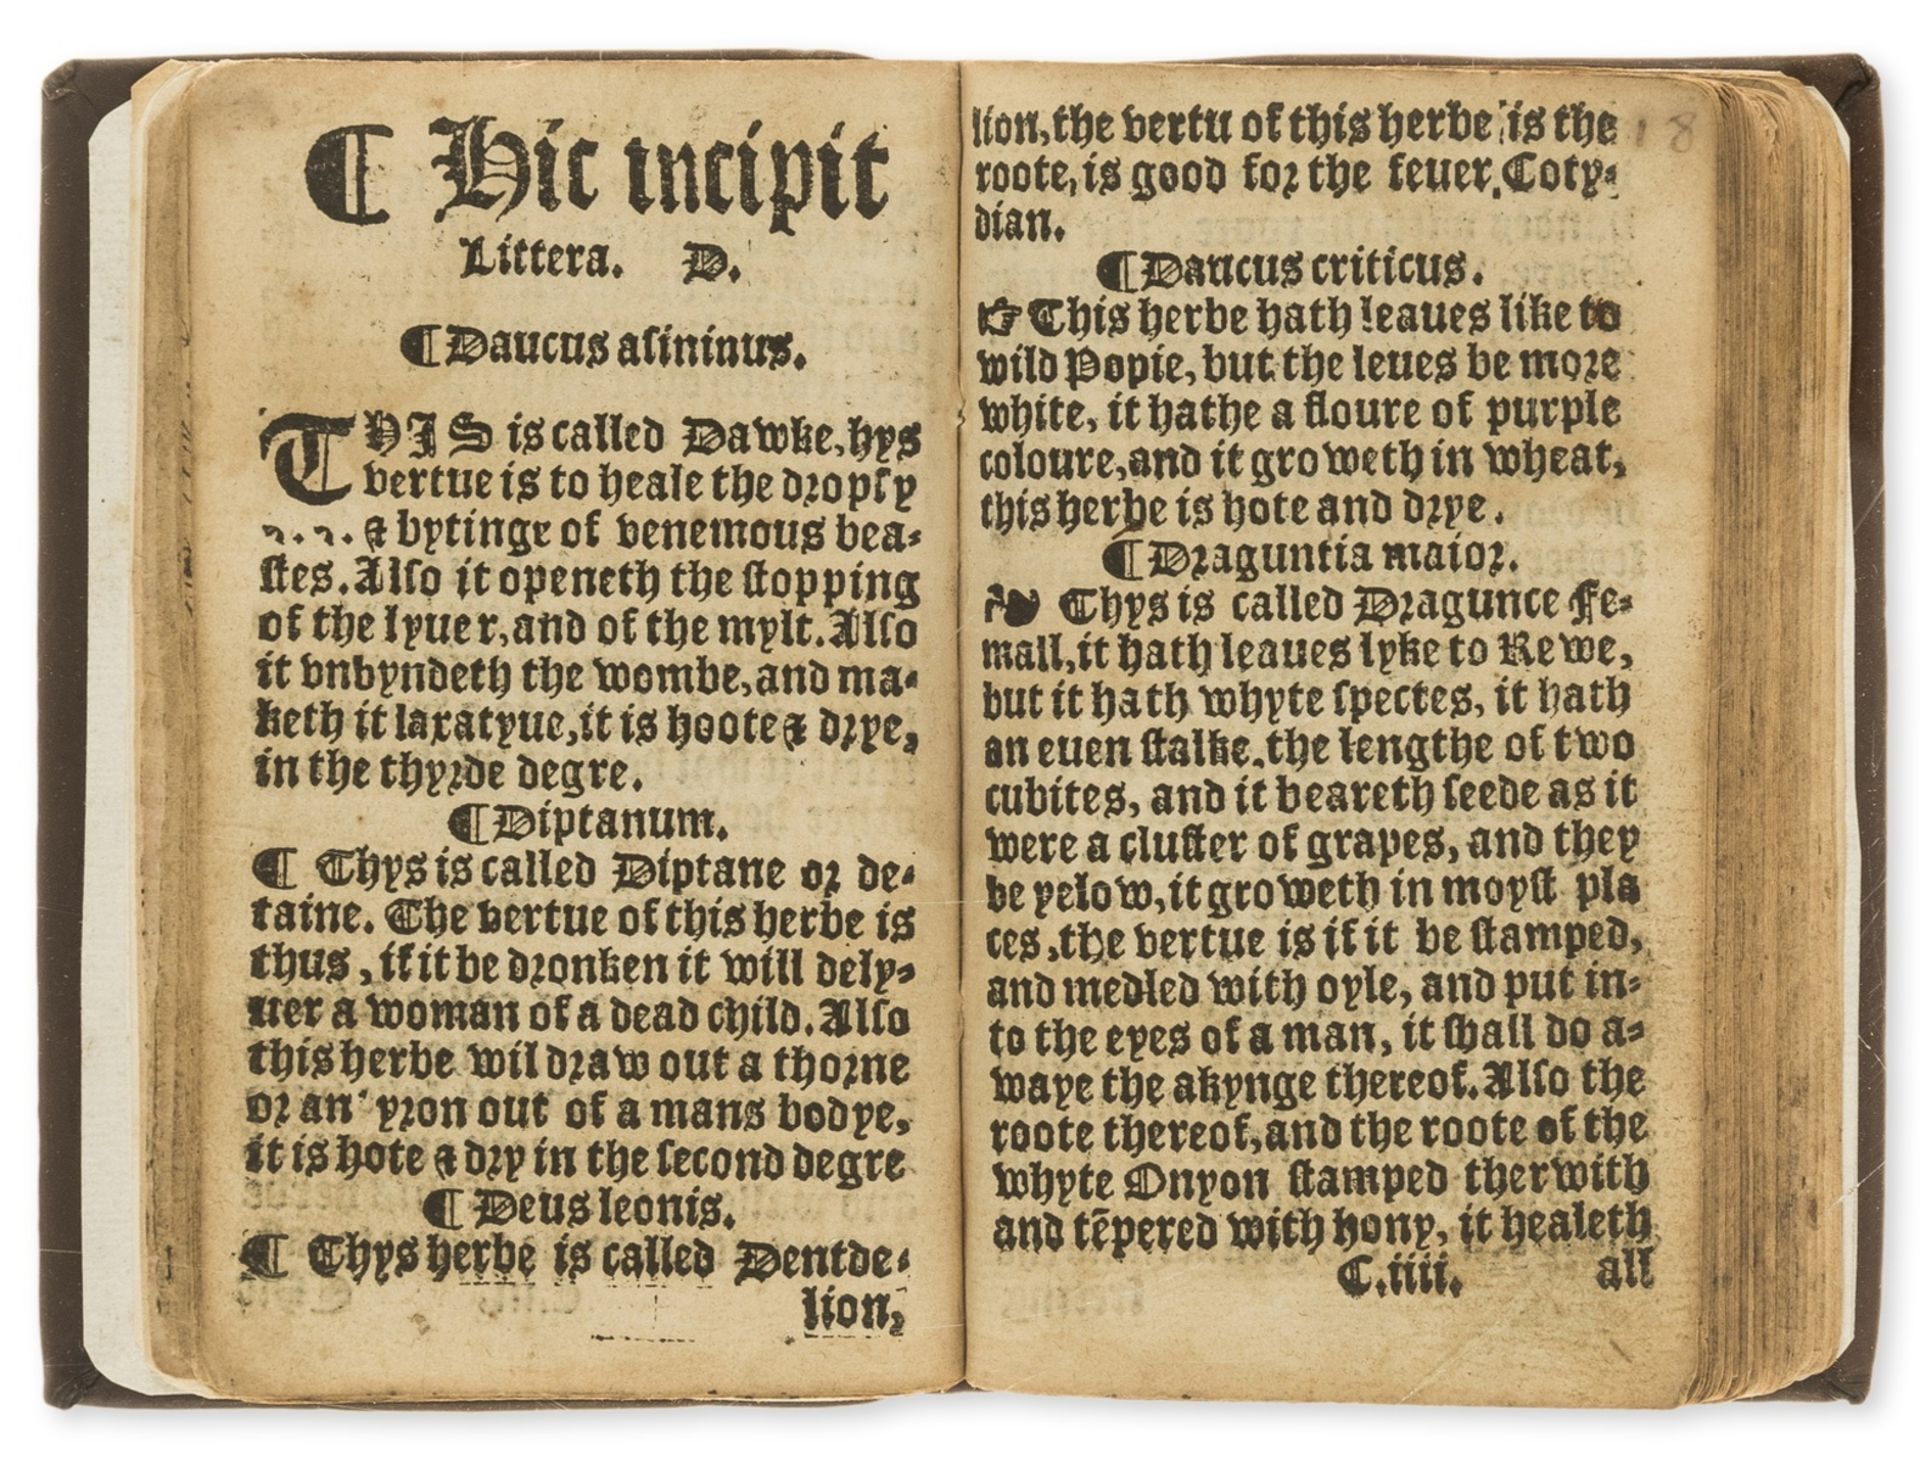 ¶ Hic incipit
Littera. D.
¶ Daucus asininus.
THIS is called Dawke, hys
vertue is to heale the dropsy
& bytinge of venemous bea-
stes. Also it openeth the stopping
of the lyuer, and of the mylt. Also
it vnbyndeth the wombe, and ma-
keth it laxatyue, it is hoote & drye,
in the thyrde degre.
¶ Diptanum.
¶ Thys is called Diptane or de-
taine. The vertue of this herbe is
thus, if it be dronken it will dely-
uer a woman of a dead child. Also
this herbe wil draw out a thorne
or an yron out of a mans bodye,
it is hote & dry in the second degre
¶ Deus leonis.
¶ Thys herbe is called Dentde-
lion,
lion, the vertu of this herbe is the
roote, is good for the feuer, Coty-
dian.
¶ Daucus criticus.
☞ This herbe hath leaues like to
wild Popie, but the leues be more
white, it hathe a floure of purple
coloure, and it groweth in wheat,
this herbe is hote and drye.
¶ Draguntia maior.
❧ Thys is called Dragunce Fe-
mall, it hath leaues lyke to Rewe,
but it hath whyte spectes, it hath
an euen stalke, the lengthe of two
cubites, and it beareth seede as it
were a cluster of grapes, and they
be yelow, it groweth in moyst pla
ces, the vertue is if it be stamped,
and medled with oyle, and put in-
to the eyes of a man, it shall do a-
waye the akynge thereof. Also the
roote thereof, and the roote of the
whyte Onyon stamped therwith
and tēpered with hony, it healeth
C.iiii. all
18